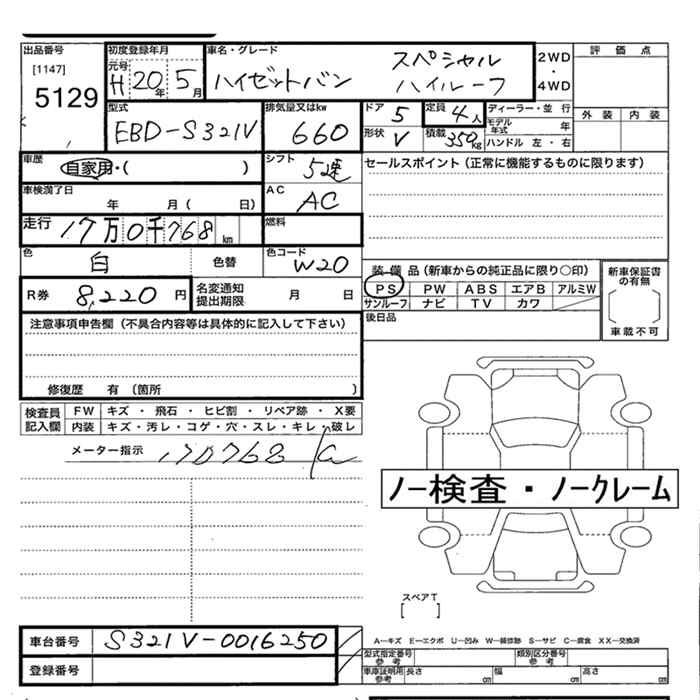 出品番号 初度登録年月 車名・グレード 評価点
[1147] 元号 スペシャル 2WD
5129 H 20年 5月 ハイゼットバン ハイルーフ ・4WD
型式 排気量又はkw ドア 5 定員 4人 ディーラー・並行 外装 内装
EBD-S321V 660 モデル年式 年
形状 V 積載 350kg ハンドル 左・右
車歴 シフト セールスポイント(正常に機能するものに限ります)
自家用・( ) 5速
車検満了日 AC
年 月( 日) AC
走行 17万0千768km 燃料
色 白 色替 色コード W20
装備品(新車からの純正品に限り○印) 新車保証書の有無
R券 8,220円 名変通知提出期限 月 日
PS PW ABS エアB アルミW
サンルーフ ナビ TV カワ
後日品 車載不可
注意事項申告欄(不具合内容等は具体的に記入して下さい)
修復歴 有(箇所 )
検査員 FW キズ・飛石・ヒビ割・リペア跡・X要
記入欄 内装 キズ・汚レ・コゲ・穴・スレ・キレ・破レ
メーター指示 170768
ノー検査・ノークレーム
スペアT
[ ]
車台番号 S321V-0016250
A-キズ E-エクボ U-凹み W-補修跡 S-サビ C-腐食 XX-交換済
登録番号
型式指定番号 参考 類別区分番号 参考
車庫証明用 参考 長さ cm 幅 cm 高さ cm